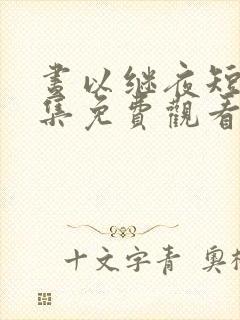 晝以继夜短
集免費觀看
十文字青 奥